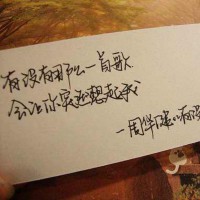 有没有那么一首歌
会让你突然想起我
—周华健《有没